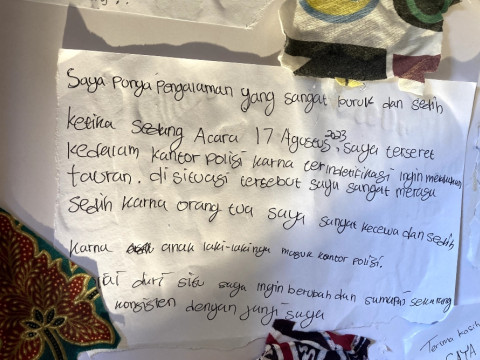 Saya punya Pengalaman yang sangat buruk dan sedih
ketika sedang Acara 17 Agustus 2023, saya terseret
kedalam kantor polisi karna terindetifikasi ingin melakukan
tauran. di situasi tersebut saya sangat merasa
sedih karna orang tua saya sangat kecewa dan sedih
karna anak laki-lakinya masuk kantor polisi.
dari situ saya ingin berubah dan sampai sekarang
konsisten dengan janji saya
Terima kasih